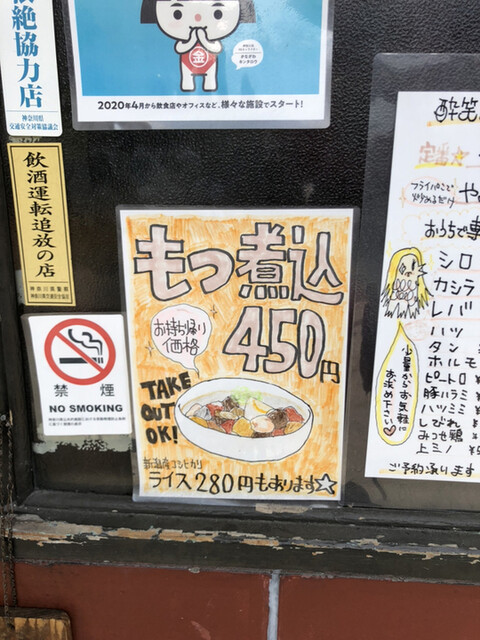 絶協力店
神奈川県
交通安全対策協議会
金
2020年4月から飲食店やオフィスなど、様々な施設でスタート!
飲酒運転追放の店
神奈川県警察
禁煙
NO SMOKING
もつ煮込
お持ち帰り
価格
450円
TAKE
OUT
OK!
新潟産コシヒカリ
ライス280円もあります☆
酔笑
定番
フライパンで
炒めるだけ
や
おうちで
シロ
カシラ
レバ
ハツ
タン
ホルモ
ピートロ
豚ハラミ
ハツミミ
しびれ
みつせ鶏
上ミノ
少量からお気軽に
お求め下さい♡
ご予約承ります